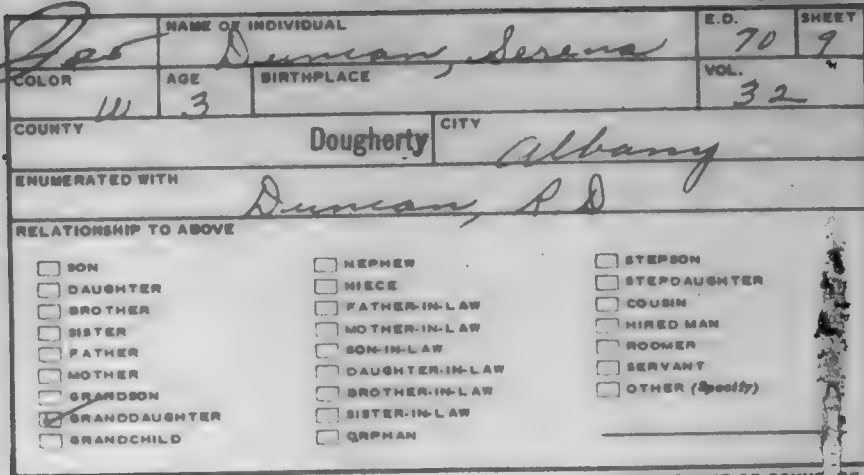 Geo
NAME OF INDIVIDUAL
Duncan, Serena
E.D.
70
SHEET
9
COLOR
W
AGE
3
BIRTHPLACE
VOL.
32
COUNTY
Dougherty
CITY
Albany
ENUMERATED WITH
Duncan, R D
RELATIONSHIP TO ABOVE
SON
DAUGHTER
BROTHER
SISTER
FATHER
MOTHER
GRANDSON
GRANDDAUGHTER
GRANDCHILD
NEPHEW
NIECE
FATHER-IN-LAW
MOTHER-IN-LAW
SON-IN-LAW
DAUGHTER-IN-LAW
BROTHER-IN-LAW
SISTER-IN-LAW
ORPHAN
STEPSON
STEPDAUGHTER
COUSIN
HIRED MAN
ROOMER
SERVANT
OTHER (Specify)